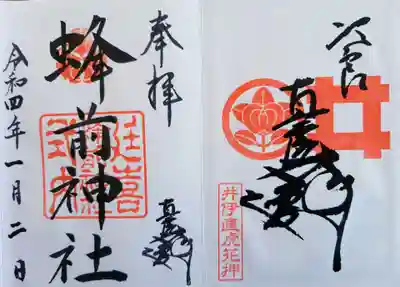 奉拝
蜂前神社
令和四年一月二日
直虎
次郎
直虎
井伊直虎花押